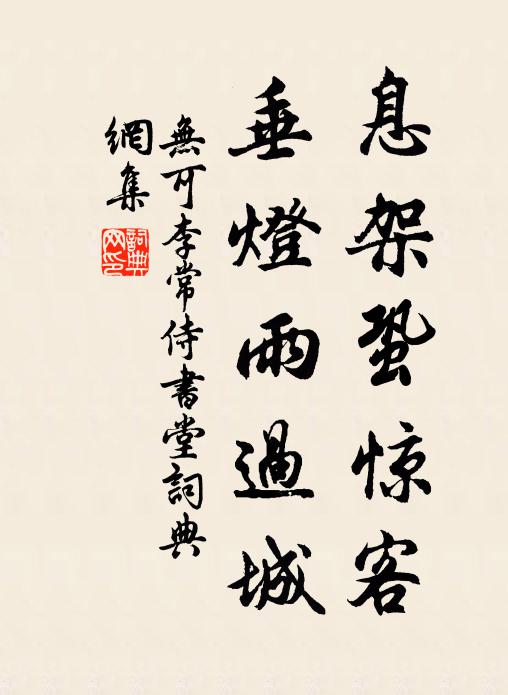 息架蛩惊客
垂燈雨過城
無可李常侍書堂詞典
網集
詞典网印